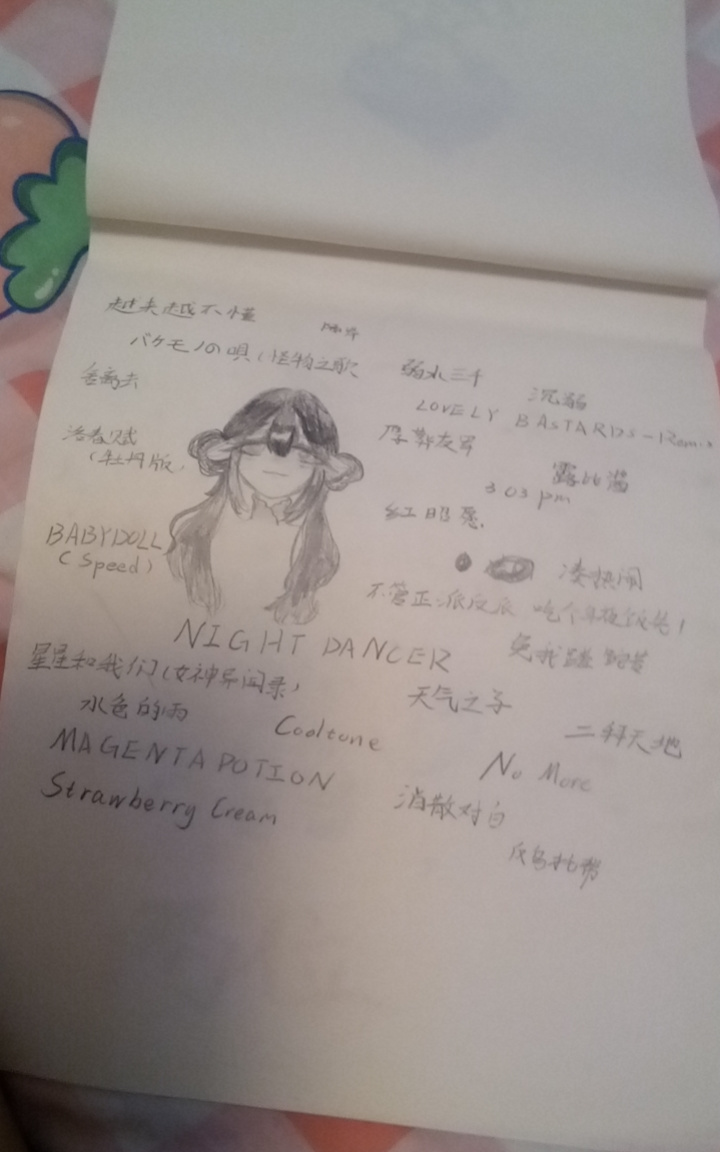 越来越不懂
バケモノの唄(怪物之歌
弱水三千
沉溺
LOVELY BASTARDS-
洛春赋
(牡丹版)
露比酱
303 pm
红昭愿
BABYDOLL
(Speed)
凑热闹
不管正派反派 吃个年夜饺先!
NIGHT DANCER
星星和我们(女神异闻录)
天气之子
水色的雨
Cooltone
二科天地
MAGENTA POTION
No More
Strawberry Cream
消散对白
反乌托帮